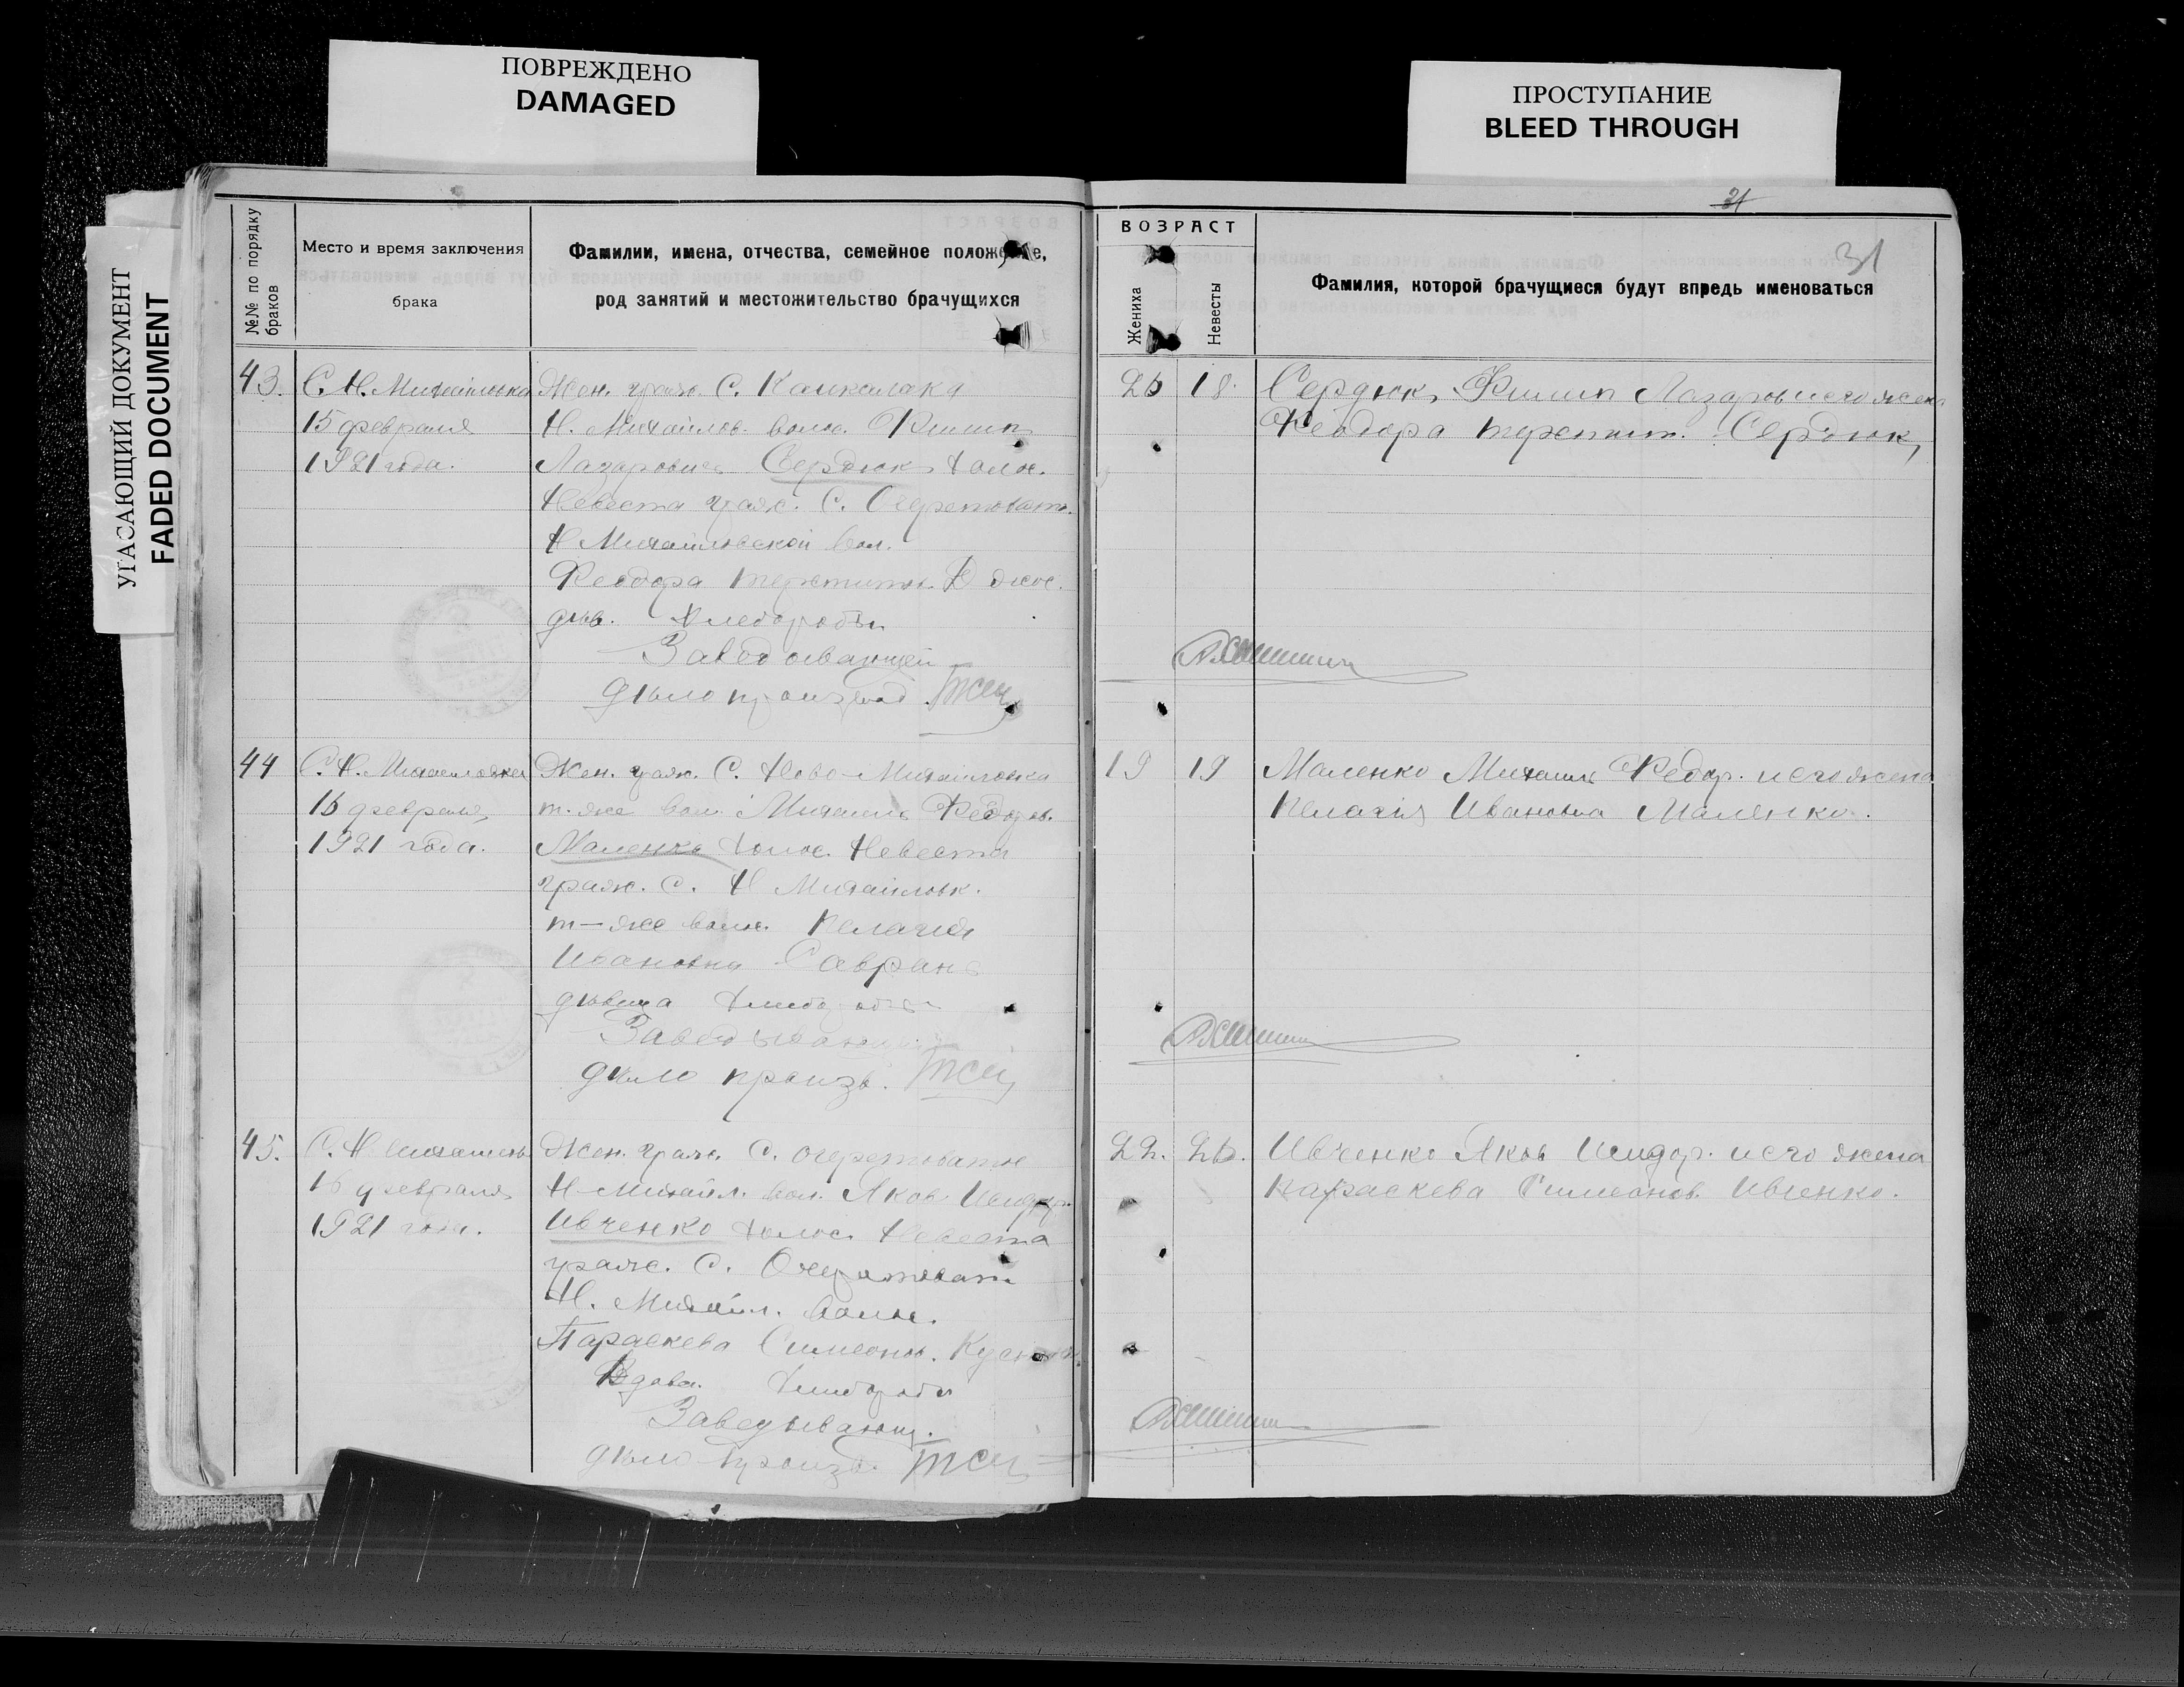 ПОВРЕЖДЕНО
DAMAGED
ПРОСТУПАНИЕ
BLEED THROUGH
УГАСАЮЩИЙ ДОКУМЕНТ
FADED DOCUMENT
31
31
№№ по порядку браков
Место и время заключения
брака
Фамилии, имена, отчества, семейное положение,
род занятий и местожительство брачущихся
ВОЗРАСТ
Жениха
Невесты
Фамилия, которой брачущиеся будут впредь именоваться
43.
С. Н. Михайловка
15 февраля
1921 года.
Жен. граж. С.
Н. Михайлов. волос. Филипп
Лазаровичъ Сердюкъ холос.
Невеста граж. С. Очеретоват.
Н Михайловской вол.
Феодора
хлеборобы
Заведывающий
дѣлопроизвод.
26 18.
Сердюкъ Филипп Лазаров. и его жена
Феодора Терентит. Сердюк,
44
С. Н. Михайловка
16 февраля
1921 года.
Жен. граж. С. Ново-Михайловка
т-же вол. Михаилъ Федоров.
Маленко холос. Невеста
граж. С. Н Михайловк.
т-же волос. Пелагия
Ивановна Савран
дѣвица хлеборобы
Заведывающий
дѣлопроизв.
19 19
Маленко Михаилъ Федор. и его жена
Пелагія Ивановна Маленко.
45.
С. Н Михайлов.
16 февраля
1921 года.
Жен. граж. С. Очеретоватое
Н-Михайл. вол. Яков Исидор.
Ивченко холос. Невеста
граж. С. Очеретоват
Н. Михайл. волос.
Параскева Симеонов.
Вдова. хлеборобы
Заведывающ.
дѣлопроизв.
22. 26.
Ивченко Яков Исидор. и его жена
Параскева Симеонов. Ивченко.